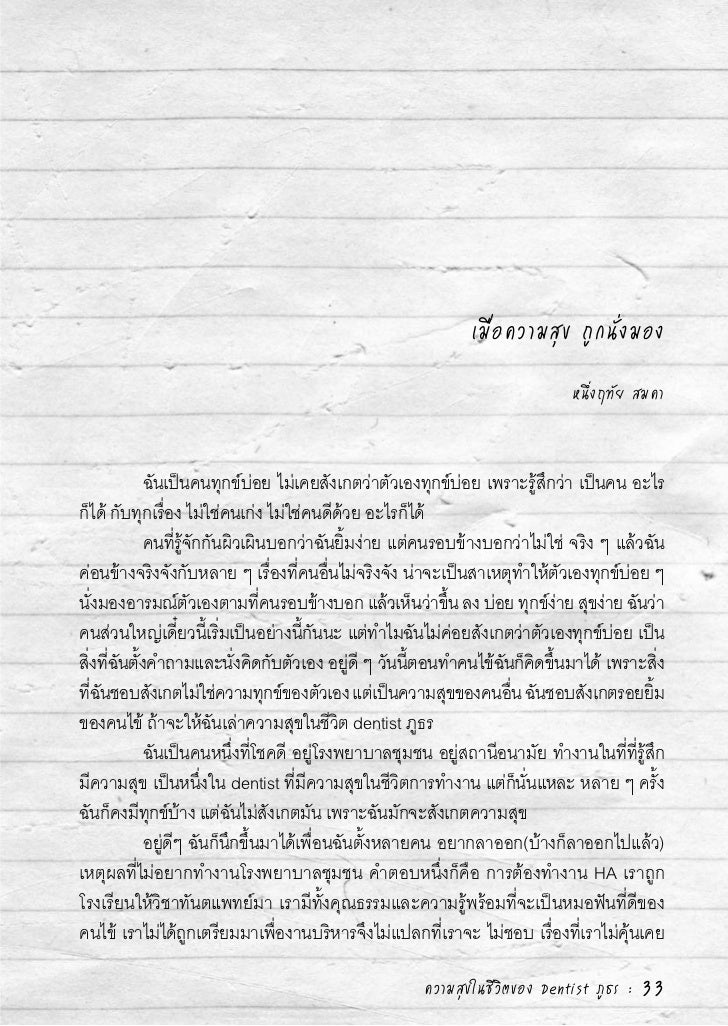 เมื่อความสุข ถูกนั่งมอง
หนึ่งฤทัย สมคา
ฉันเป็นคนทุกข์บ่อย ไม่เคยสังเกตว่าตัวเองทุกข์บ่อย เพราะรู้สึกว่า เป็นคน อะไร
ก็ได้ กับทุกเรื่อง ไม่ใช่คนเก่ง ไม่ใช่คนดีด้วย อะไรก็ได้
คนที่รู้จักกันผิวเผินบอกว่าฉันยิ้มง่าย แต่คนรอบข้างบอกว่าไม่ใช่ จริง ๆ แล้วฉัน
ค่อนข้างจริงจังกับหลาย ๆ เรื่องที่คนอื่นไม่จริงจัง น่าจะเป็นสาเหตุทำให้ตัวเองทุกข์บ่อย ๆ
นั่งมองอารมณ์ตัวเองตามที่คนรอบข้างบอก แล้วเห็นว่าขึ้น ลง บ่อย ทุกข์ง่าย สุขง่าย ฉันว่า
คนส่วนใหญ่เดี๋ยวนี้เริ่มเป็นอย่างนี้กันนะ แต่ทำไมฉันไม่ค่อยสังเกตว่าตัวเองทุกข์บ่อย เป็น
สิ่งที่ฉันตั้งคำถามและนั่งคิดกับตัวเอง อยู่ดี ๆ วันนี้ตอนทำคนไข้ฉันก็คิดขึ้นมาได้ เพราะสิ่ง
ที่ฉันชอบสังเกตไม่ใช่ความทุกข์ของตัวเอง แต่เป็นความสุขของคนอื่น ฉันชอบสังเกตรอยยิ้ม
ของคนไข้ ถ้าจะให้ฉันเล่าความสุขในชีวิต dentist ภูธร
ฉันเป็นคนหนึ่งที่โชคดี อยู่โรงพยาบาลชุมชน อยู่สถานีอนามัย ทำงานในที่ที่รู้สึก
มีความสุข เป็นหนึ่งใน dentist ที่มีความสุขในชีวิตการทำงาน แต่ก็นั่นแหละ หลาย ๆ ครั้ง
ฉันก็คงมีทุกข์บ้าง แต่ฉันไม่สังเกตมัน เพราะฉันมักจะสังเกตความสุข
อยู่ดีๆ ฉันก็นึกขึ้นมาได้เพื่อนฉันตั้งหลายคน อยากลาออก(บ้างก็ลาออกไปแล้ว)
เหตุผลที่ไม่อยากทำงานโรงพยาบาลชุมชน คำตอบหนึ่งก็คือ การต้องทำงาน HA เราถูก
โรงเรียนให้วิชาทันตแพทย์มา เรามีทั้งคุณธรรมและความรู้พร้อมที่จะเป็นหมอฟันที่ดีของ
คนไข้ เราไม่ได้ถูกเตรียมมาเพื่องานบริหารจึงไม่แปลกที่เราจะ ไม่ชอบ เรื่องที่เราไม่คุ้นเคย
ความสุขในชีวิตของ Dentist ภูธร : 33